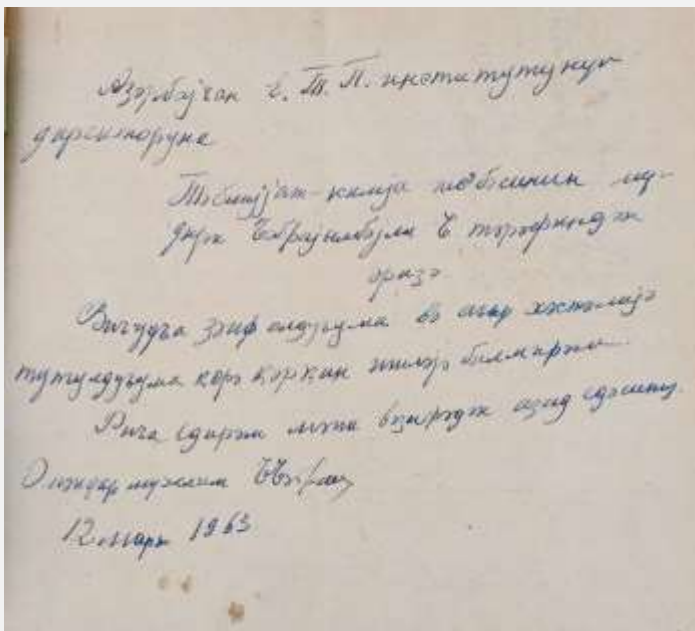 Азәрбајҹан Е. Т. П. институтунун
директоруна
Тәбиијјат-кимја шө'бәсинин мү-
дири Ҹәбрајылбәјли Ҹ тәрәфиндән
әризә
Вүҹудҹа зәиф олдуғума вә ағыр хәстәлијә
тутулдуғума көрә ишләјә билмирәм.
Риҹа едирәм мәни вәзифәдән азад едәсиниз.
мүәллим
12 март 1963